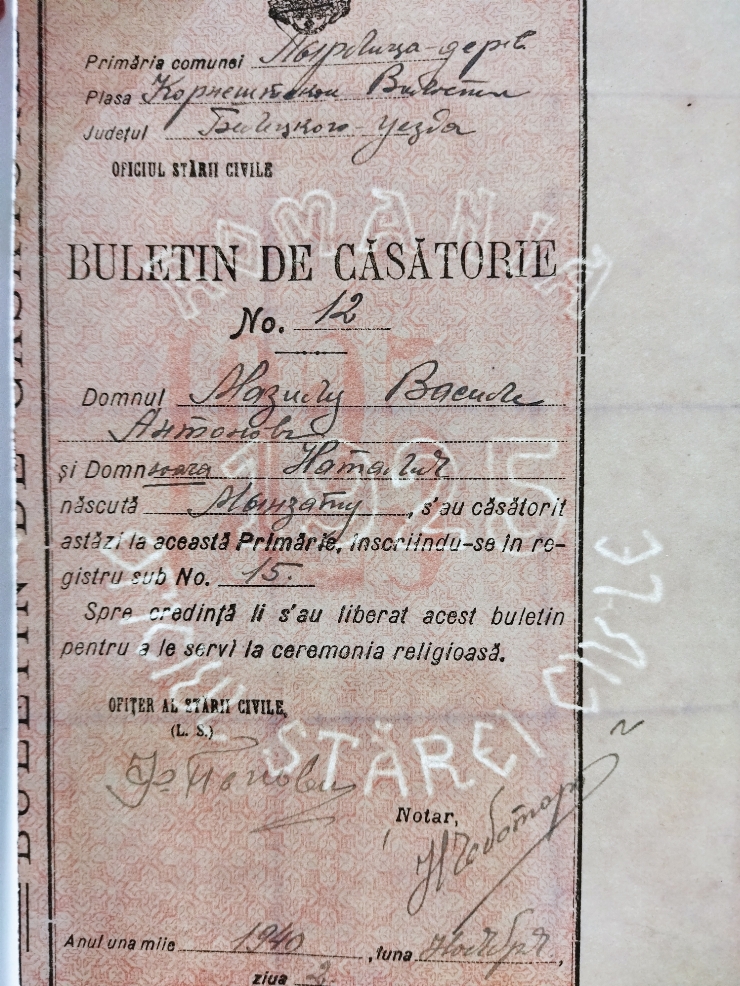 Primăria comunei Пырлица-дерев.
Plasa Корнештской Волости
Județul Бельцкого-уезда
OFICIUL STĂRII CIVILE
ROMÂNIA
BULETIN DE CĂSĂTORIE
No. 12
Domnul Мазилу Василе
Антонов
și Domnșoara Наталия
născută Мынзату, s'au căsătorit
astăzi la această Primărie, înscriindu-se în re-
gistru sub No. 15.
1925
Spre credință li s'au liberat acest buletin
pentru a le servi la ceremonia religioasă.
OFIȚER AL STĂRII CIVILE,
(L. S.)
STĂREI CIVILE
Notar,
Anul una mie 1940, luna Ноября,
ziua 2
BULETIN DE